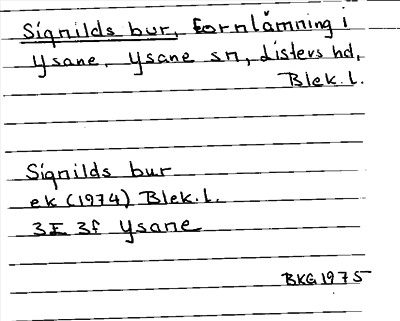 Signilds bur, fornlämning i
Ysane, Ysane sn, Listers hd,
Blek. l.
Signilds bur
ek (1974) Blek. l.
3E 3f Ysane
BKG 1975